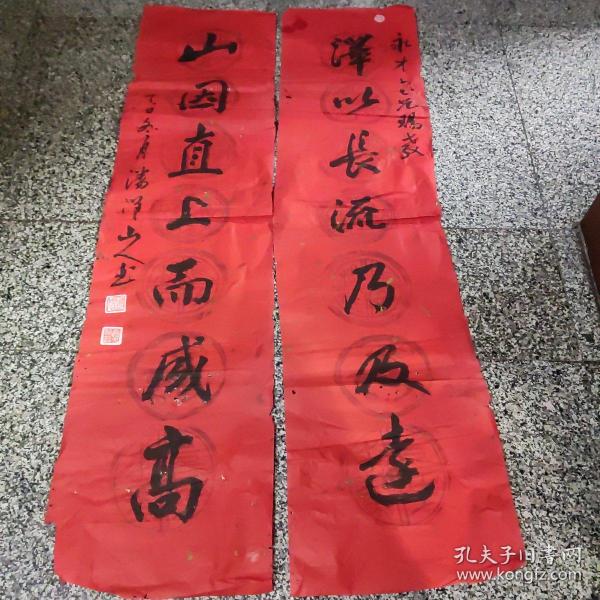 永才仁兄賜教
澤以長流乃及遠
山因直上而成高
丁丑冬月
山人书
孔夫子旧书网
www.kongfz.com